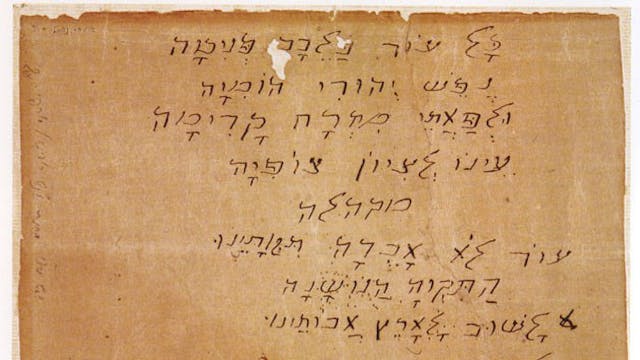 כָּל עוֹד בַּלֵּבָב פְּנִימָה
נֶפֶשׁ יְהוּדִי הוֹמִיָה
וּלְפַאֲתֵי מִזְרָח קָדִימָה
עֵינוֹ לְצִיוֹן צוֹפִיָה
מקהלה
עוֹד לֹא אָבְדָה תִּקְוָתֵינוּ.
הַתִּקְוָה הַנוֹשָׁנָה
לָשׁוּב לְאֶרֶץ אֲבוֹתֵינוּ.